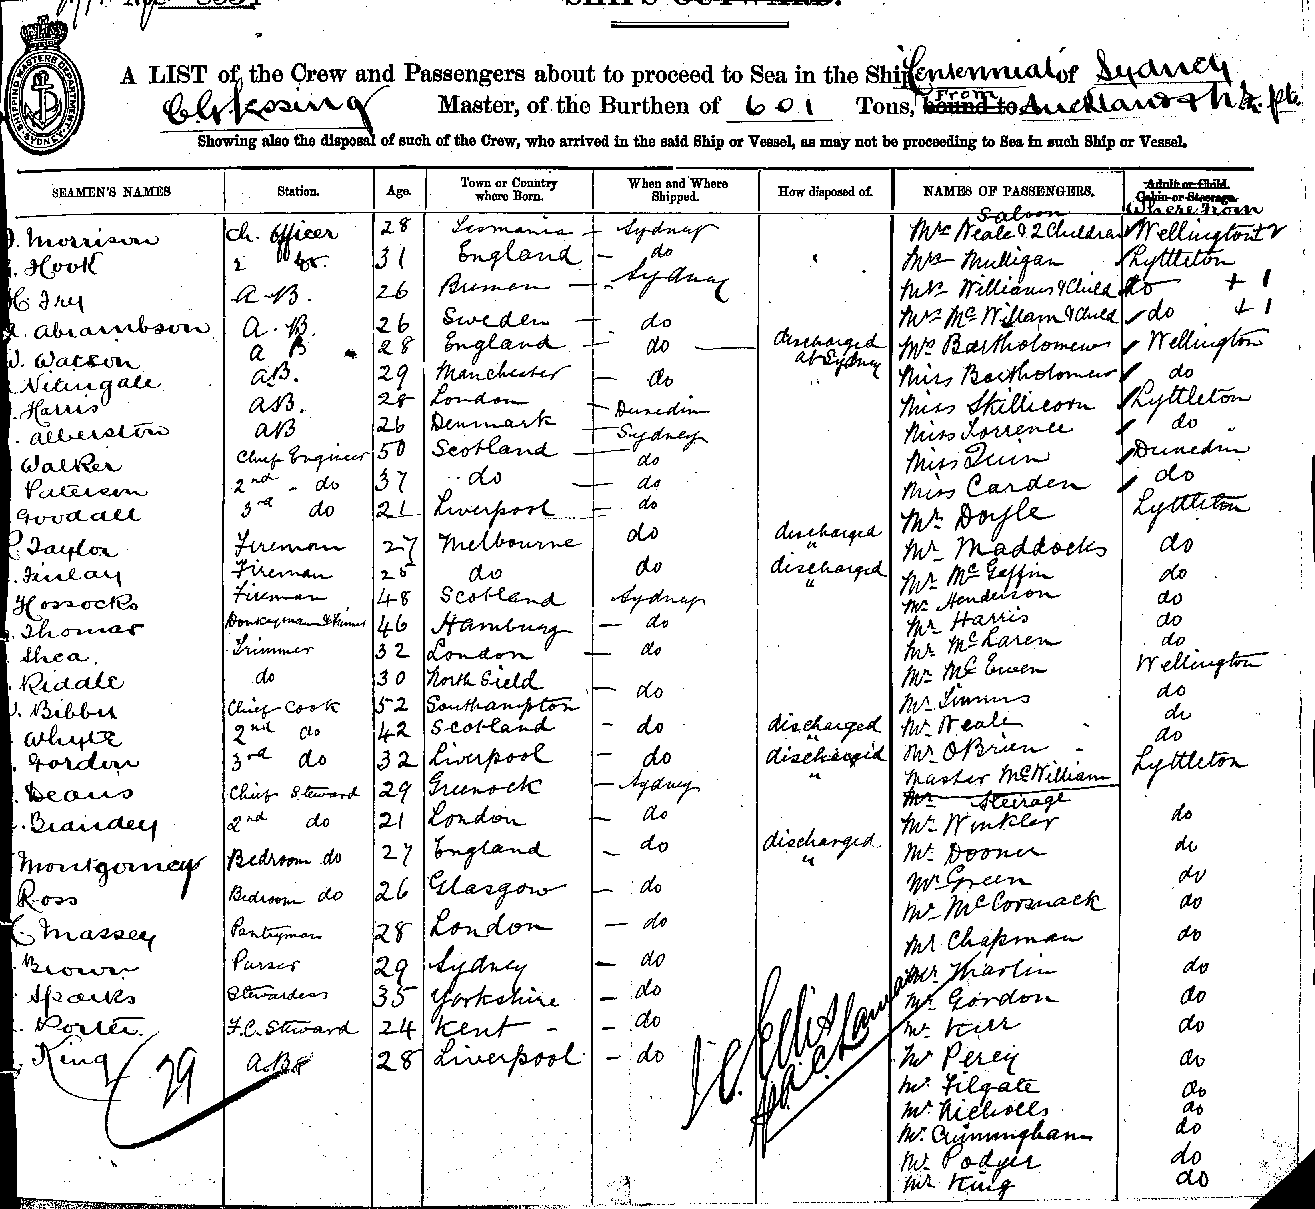 SHIPS OUTWARD.
A LIST of the Crew and Passengers about to proceed to Sea in the Ship Centennial of Sydney
Master, of the Burthen of 601 Tons, bound to From Auckland & N.Z. pts
Showing also the disposal of such of the Crew, who arrived in the said Ship or Vessel, as may not be proceeding to Sea in such Ship or Vessel.
SEAMEN'S NAMES Station. Age. Town or Country where Born. When and Where Shipped. How disposed of. NAMES OF PASSENGERS. Adult or Child. Cabin or Steerage.
Saloon Where from
Morrison Ch. Officer 28 Tasmania – Sydney Mrs Neale & 2 Children Wellington + 2
Hook 2 do. 31 England – do Mrs Mulligan Lyttleton
Fry A.B. 26 Bremen – Sydney Mrs Williams & Child do + 1
Abrambson A.B. 26 Sweden – do Mrs McWilliam & Child do + 1
Watson A B 28 England – do discharged at Sydney Mrs Bartholomew Wellington
Nitingale AB. 29 Manchester – do Miss Bartholomew do
Harris AB. 28 London – Dunedin Miss Skillicorn Lyttleton
Alberston AB 26 Denmark – Sydney Miss Torrence do
Walker Chief Engineer 50 Scotland – do Miss Quin Dunedin
Paterson 2nd do 37 do – do Miss Carden do
Goodall 3rd do 21 Liverpool – do Mr Doyle Lyttleton
Taylor Fireman 27 Melbourne do discharged " Mr Maddocks do
Finlay Fireman 25 do do discharged " Mr McGaffin do
Hossocks Fireman 48 Scotland Sydney Mr Henderson do
Thomas Donkeyman & Trimmer 46 Hamburg – do Mr Harris do
Shea Trimmer 32 London – do Mr McLaren do
Riddle do 30 North Sield – do Mr McEwen Wellington
Bibby Chief Cook 52 Southampton Mr Timms do
Whyte 2nd do 42 Scotland – do discharged " Mr Neale do
Gordon 3rd do 32 Liverpool – do discharged " Mr O'Brien do
Master McWilliam Lyttleton
Deans Chief Steward 29 Greenock – Sydney Mr Steerage
Brandey 2nd do 21 London – do Mr Winkler do
Montgomery Bedroom do 27 England – do discharged " Mr Dooner do
Mr Green do
Ross Bedroom do 26 Glasgow – do Mr McCormack do
Massey Pantryman 28 London – do Mr Chapman do
Brown Purser 29 Sydney – do Mr Tharlin do
Sparks Stewardess 35 Yorkshire – do Mr Gordon do
Porter F.C. Steward 24 Kent – do Mr Kerr do
King ABs 28 Liverpool – do Mr Percy do
29
Mr Filgate do
Mr Nicholls do
Mr Cunningham do
Mr Podger do
Mr King do